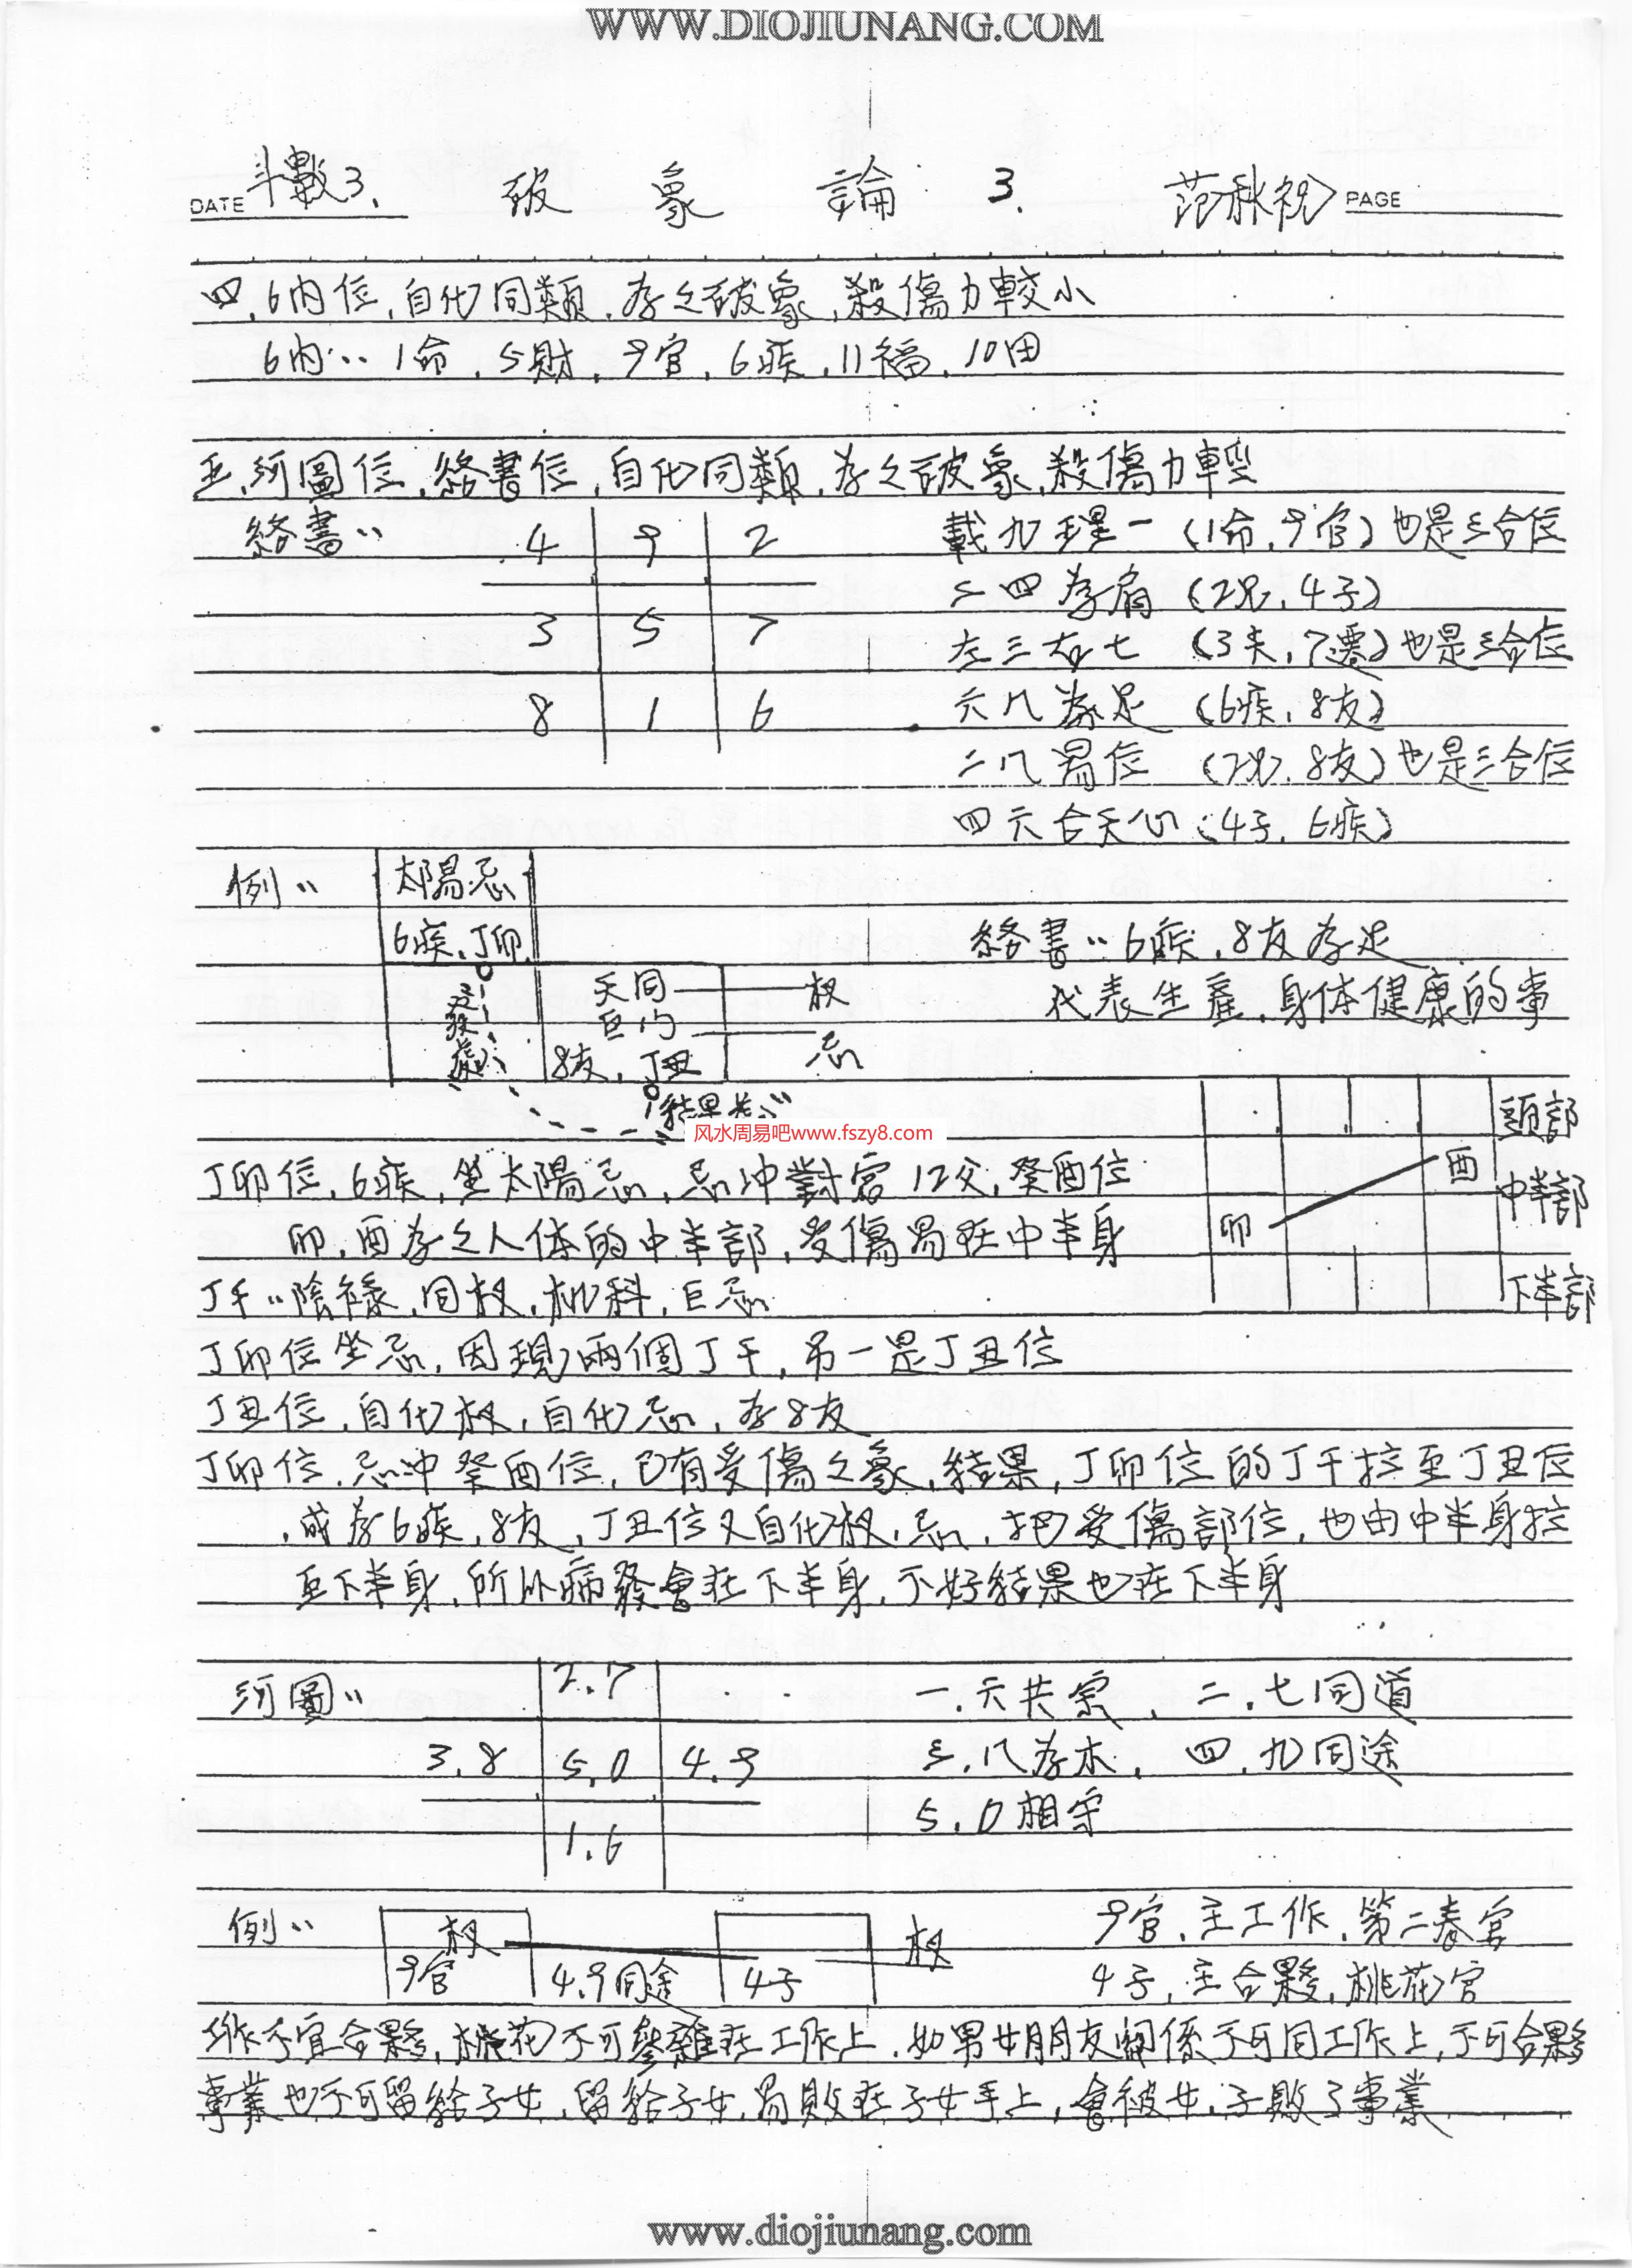 WWW.DIOJIUNANG.COM
DATE 斗數3. 破象論 3. 范秋祝 PAGE
四.6内位,自化同類,為之破象,殺傷力較小
6内:1命,5財,9官,6疾,11福,10田
五.河圖位,絡書位,自化同類,為之破象,殺傷力輕
絡書:
4 9 2
3 5 7
8 1 6
載九理一 (1命,9官)也是三合位
二四為肩 (2兄,4子)
左三右七 (3夫,7遷)也是三合位
六八為足 (6疾,8友)
二八易位 (2兄,8友)也是三合位
四六合天心(4子,6疾)
例:
太陽忌
6疾,丁卯
發處
天同 权
巨门 忌
8友,丁丑
結果
絡書:6疾,8友為足
代表生產,身体健康的事
風水周易吧www.fszy8.com
頭部
酉 中半部
卯
下半部
丁卯位,6疾,坐太陽忌,忌冲對宮12父,癸酉位
卯,酉為之人体的中半部,受傷易在中半身
丁干:陰祿,同权,机科,巨忌
丁卯位坐忌,因現兩個丁干,另一是丁丑位
丁丑位,自化权,自化忌,為8友
丁卯位,忌冲癸酉位,已有受傷之象,結果,丁卯位的丁干拉至丁丑位
,成為6疾,8友,丁丑位又自化权,忌,把受傷部位,也由中半身拉
至下半身,所以病發會在下半身,不好結果也在下半身
河圖:
2.7
3.8 5.0 4.9
1.6
一.六共宗,二.七同道
三.八為木,四.九同途
5.0相守
例:
权
9官 4.9同途 4子 权
9官,主工作,第二春宮
4子,主合夥,桃花宮
工作不宜合夥,桃花不可參雜在工作上,如男女朋友關係不可同工作上,不可合夥
事業也不可留給子女,留給子女,易敗在子女手上,會被女,子敗了事業
www.diojiunang.com